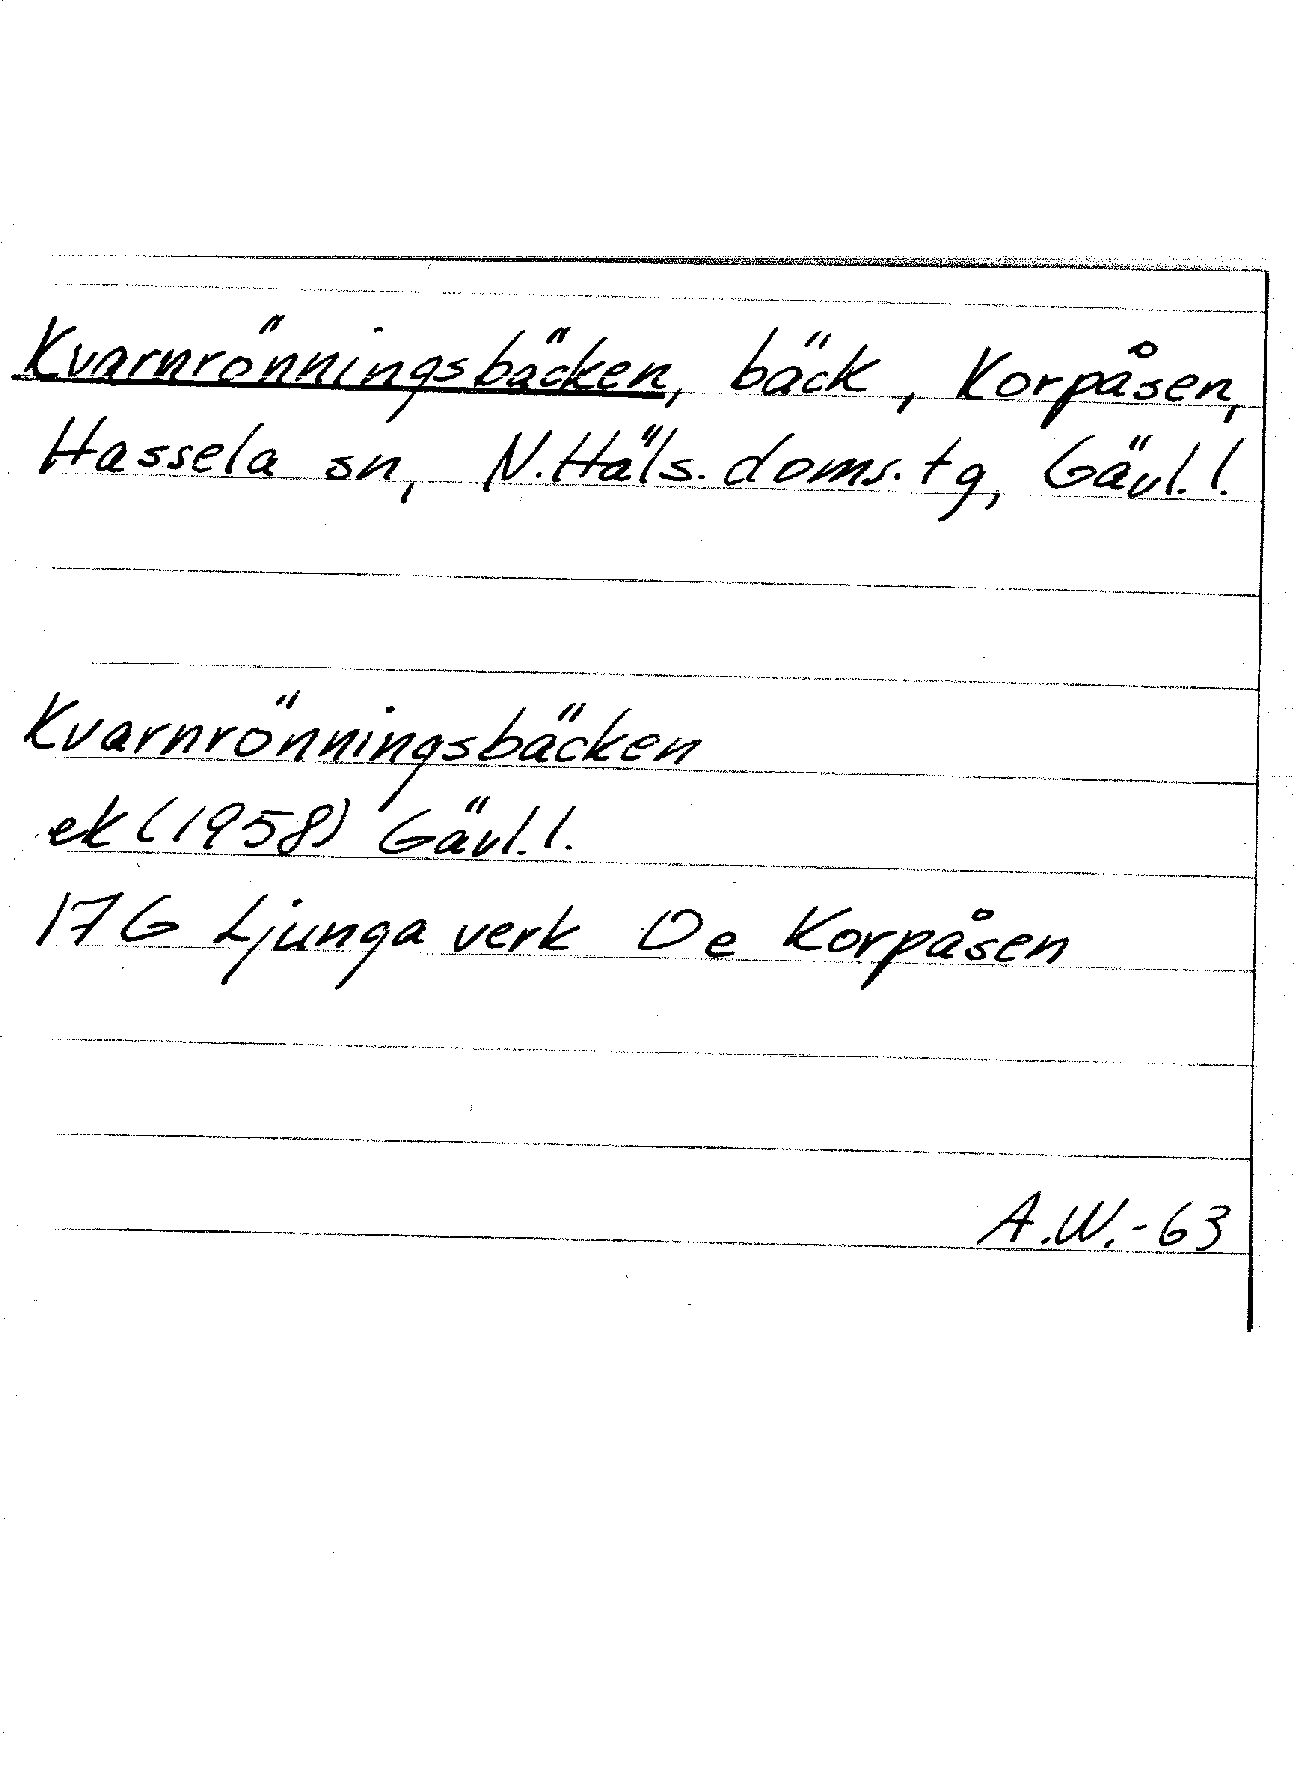 Kvarnrönningsbäcken, bäck, Korpåsen,
Hassela sn, N.Häls.doms.tg, Gävl.l.
Kvarnrönningsbäcken
ek (1958) Gävl.l.
17G Ljungaverk 0e Korpåsen
A.W.-63